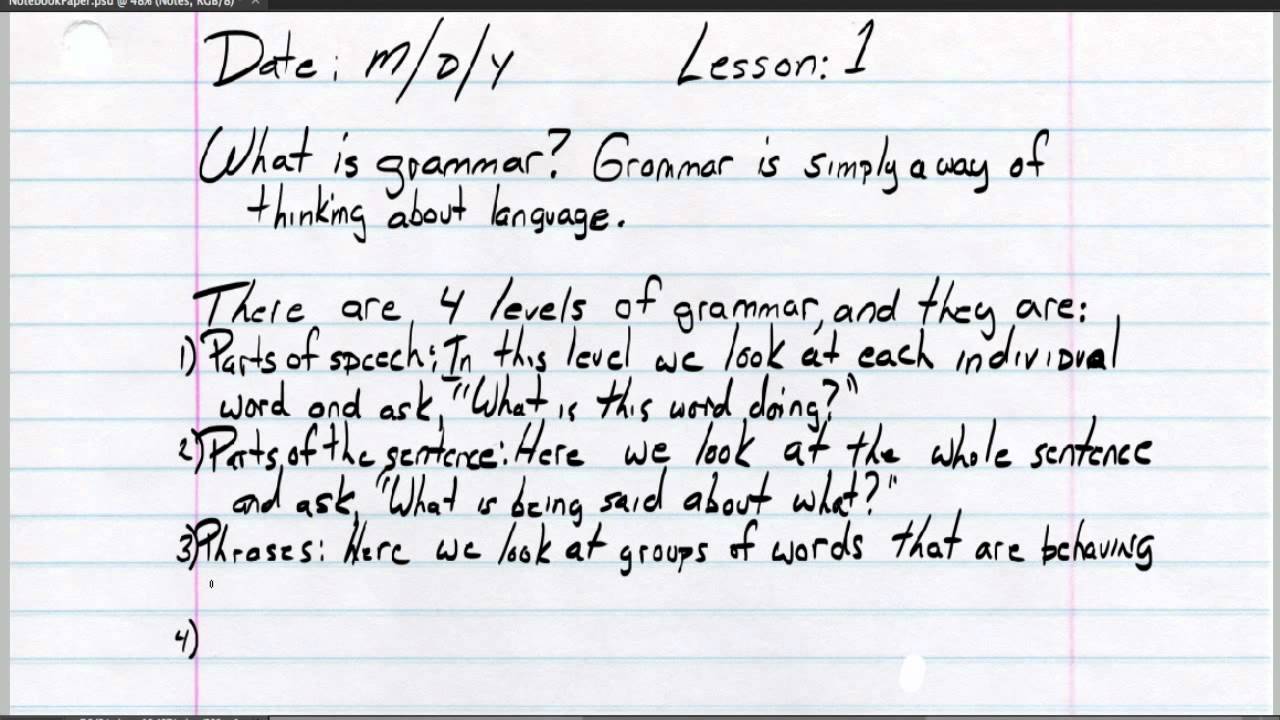 NotebookPaper.psd @ 48% (Notes, RGB/8)
Date: M/D/Y Lesson: 1
What is grammar? Grammar is simply a way of
thinking about language.
There are 4 levels of grammar, and they are:
1) Parts of speech: In this level we look at each individual
word and ask, "What is this word doing?"
2) Parts of the sentence: Here we look at the whole sentence
and ask, "What is being said about what?"
3) Phrases: Here we look at groups of words that are behaving
4)